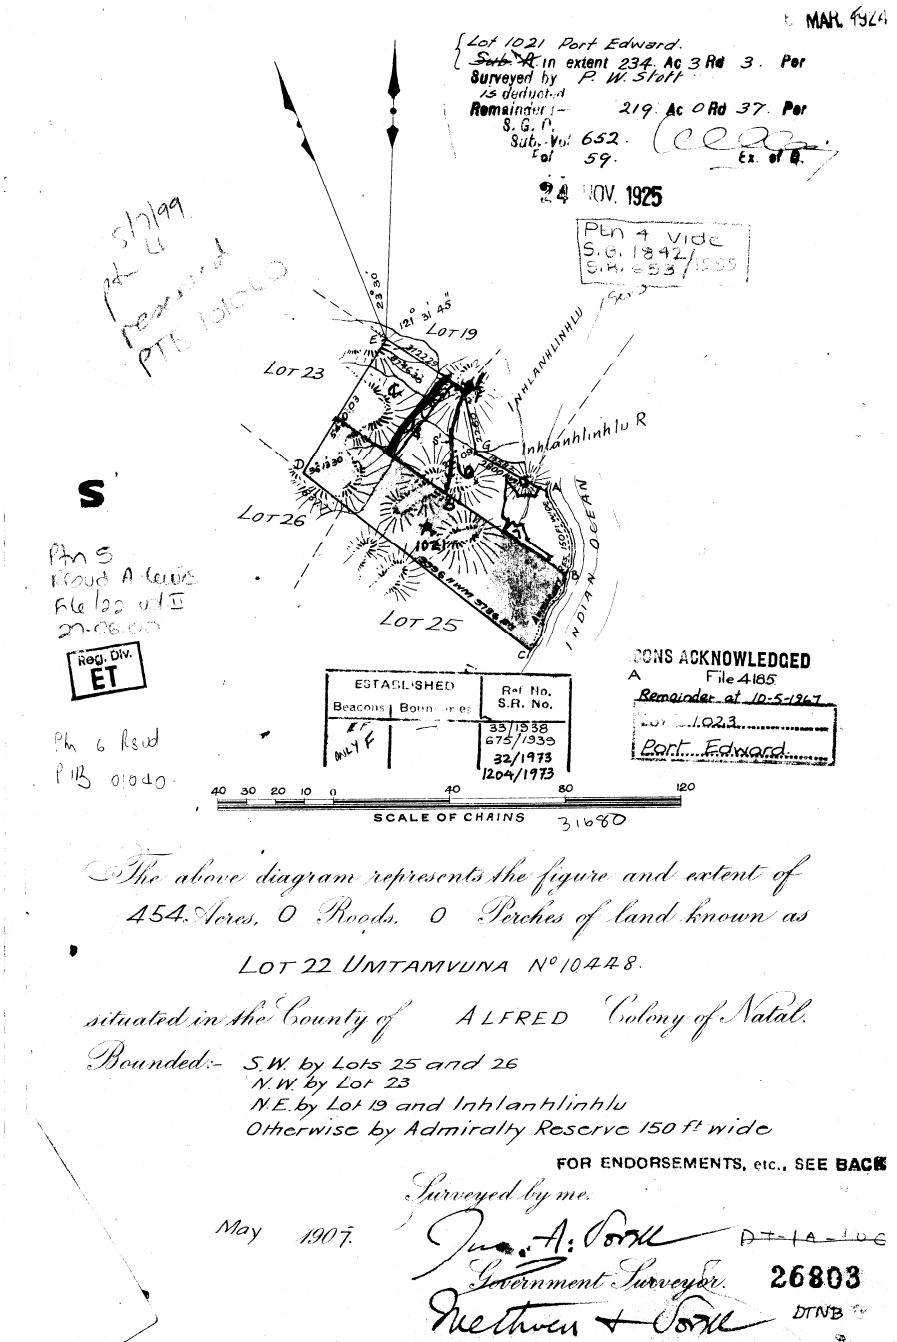 MAR. 1924
Lot 1021 Port Edward.
Sub. A in extent 234. Ac 3 Rd 3. Per
Surveyed by P. W. Stott
is deducted
Remainder:- 219. Ac 0 Rd 37. Per
S. G. O.
Sub. Vol 652.
Fol 59.
Ex. of D.
24 NOV. 1925
Ptn 4 Vide
S.G. 1842/
S.R. 653/1955
5/7/99
ptn 4
reserved
PTB 101040
23° 30'
121° 31' 45"
LOT 19
E
LOT 23
INHLANHLINHLU
Inhlanhlinhlu R
G
A
D
LOT 26
1021
150 FT WIDE
INDIAN OCEAN
B
C
LOT 25
S
Ptn 5
Rsvd A Lewis
File 122 vol II
27-06-00
Reg. Div.
ET
Ptn 6 Rsvd
PTB 01040.
ESTABLISHED
Beacons
Boundaries
Ref No.
S.R. No.
ONLY F
33/1938
675/1939
32/1973
1204/1973
CONS ACKNOWLEDGED
A File 4185
Remainder at 10-5-1967
LOT 1023
Port Edward.
40 30 20 10 0 40 80 120
SCALE OF CHAINS
31680
The above diagram represents the figure and extent of
454 Acres, 0 Roods, 0 Perches of land known as
LOT 22 UMTAMVUNA No 10448.
situated in the County of ALFRED Colony of Natal.
Bounded:- S.W. by Lots 25 and 26
N.W. by Lot 23
N.E. by Lot 19 and Inhlanhlinhlu
Otherwise by Admiralty Reserve 150 ft wide
FOR ENDORSEMENTS, etc., SEE BACK
Surveyed by me.
May 1907.
Government Surveyor.
26803
DTNB